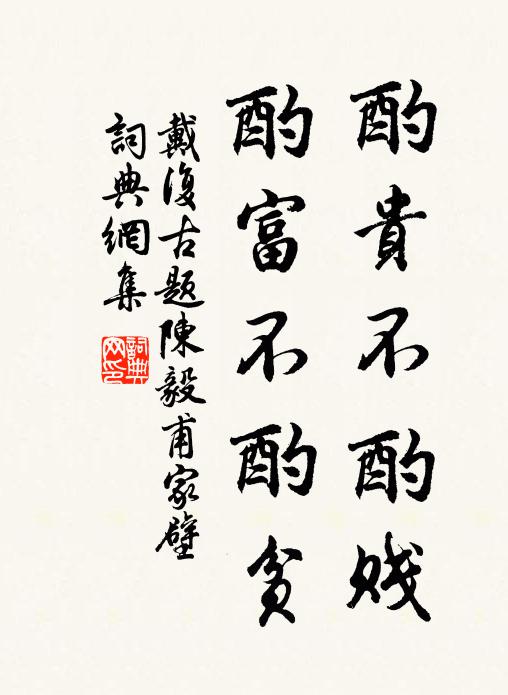 酌貴不酌賤
酌富不酌貧
戴復古题陳毅甫家壁
詞典網集
詞典
网印